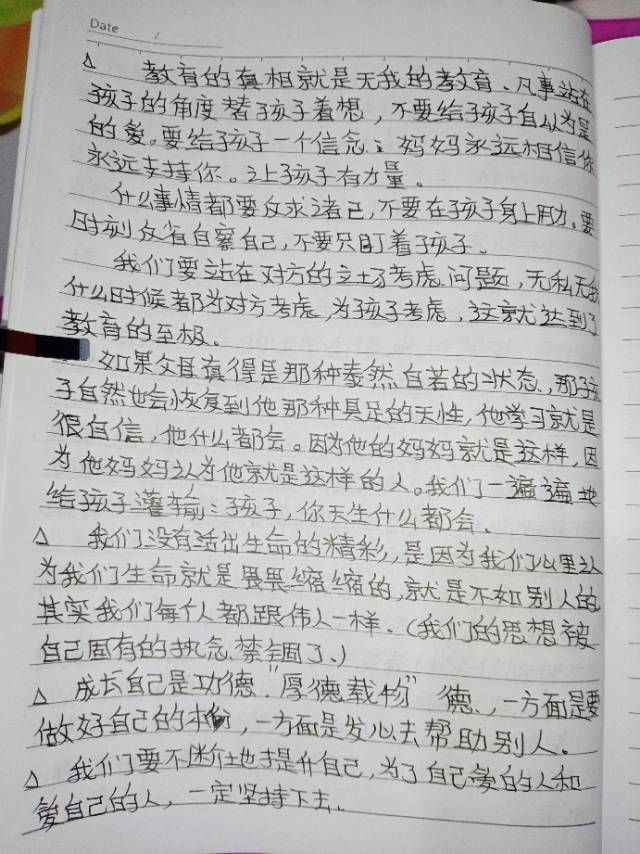 Date /
△ 教育的真相就是无我的教育、凡事站在
孩子的角度替孩子着想，不要给孩子自以为是
的爱。要给孩子一个信念：妈妈永远相信你
永远支持你。让孩子有力量。
什么事情都要反求诸己，不要在孩子身上用力。要
时刻反省自察自己，不要只盯着孩子。
我们要站在对方的立场考虑问题，无私无我
什么时候都为对方考虑，为孩子考虑，这就达到了
教育的至极。
如果父母真得是那种泰然自若的状态，那孩
子自然也会恢复到他那种具足的天性，他学习就是
很自信，他什么都会。因为他的妈妈就是这样，因
为他妈妈认为他就是这样的人。我们一遍遍地
给孩子灌输：孩子，你天生什么都会、
△ 我们没有活出生命的精彩，是因为我们心里认
为我们生命就是畏畏缩缩的，就是不如别人的，
其实我们每个人都跟伟人一样、（我们的思想被
自己固有的执念、禁锢了、）
△ 成长自己是功德、"厚德载物"德、，一方面是要
做好自己的本份，一方面是发心去帮助别人。
△ 我们要不断地提升自己，为了自己爱的人和
爱自己的人，一定坚持下去。